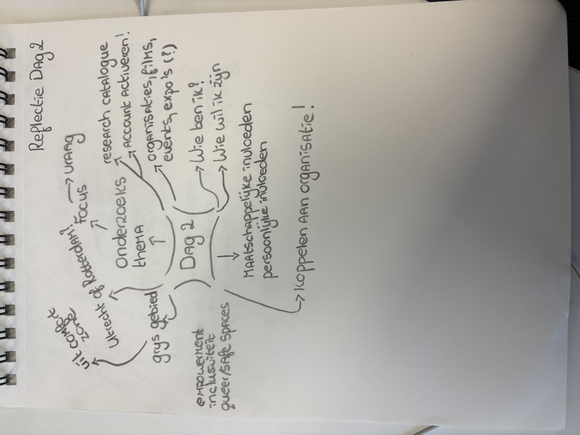 Reflectie Dag 2
research catalogue
Account activeren!
organisaties, films,
events, expo's (?)
Onderzoeks
thema
Focus
vraag
Utrecht of Rotterdam?
uit comfort
zone
grijs gebied
Dag 2
Wie ben ik?
Wie wil ik zijn
Maatschappelijke invloeden
persoonlijke invloeden
empowerment
inclusiviteit
queer/safe spaces
Koppelen aan organisatie!